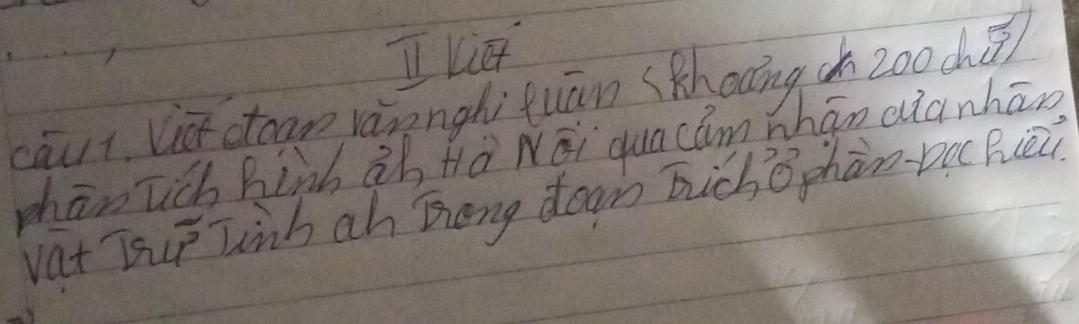 II Viết
câu 1. Viết đoạn văn nghị luận (khoảng ch 200 chữ)
phân tích hình ảh Hà Nội qua cảm nhận của nhân
vật trữ tình ah trong đoạn trích ở phần đọc hiểu.